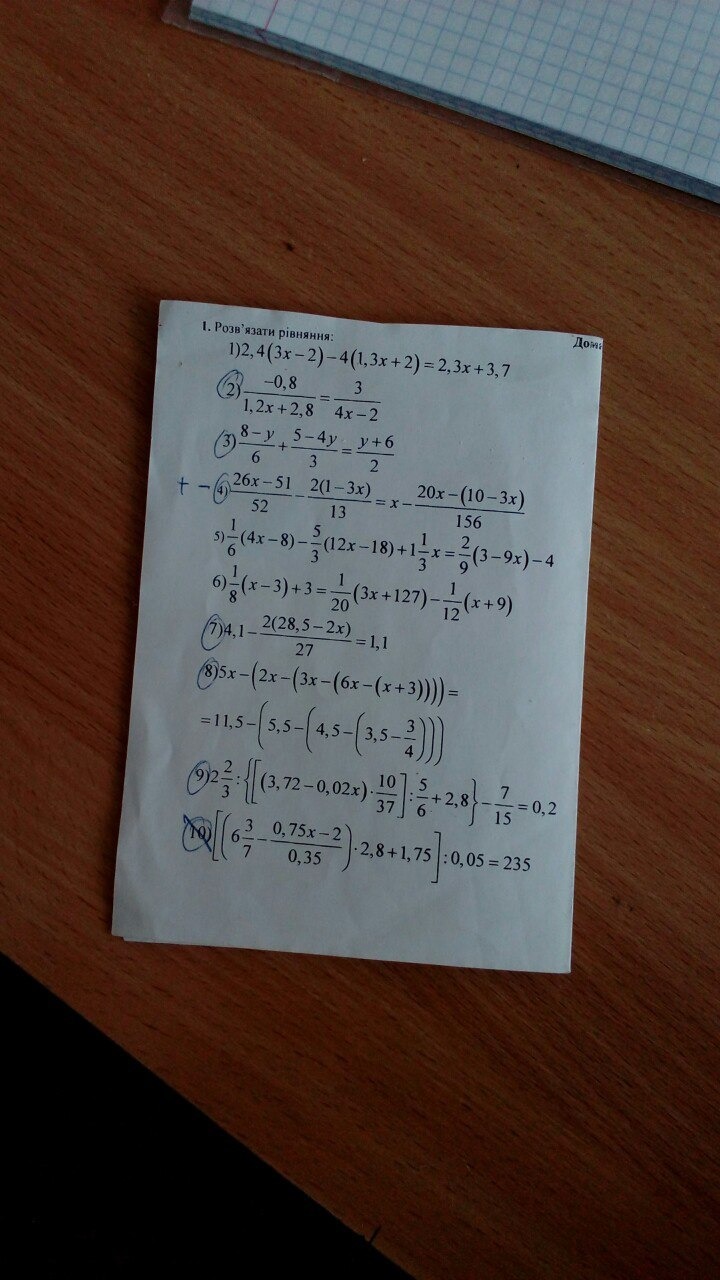 1. Розв'язати рівняння:
1) 2,4(3x−2)−4(1,3x+2)=2,3x+3,7
2) −0,8/(1,2x+2,8) = 3/(4x−2)
3) (8−y)/6 + (5−4y)/3 = (y+6)/2
+ − 4) (26x−51)/52 − 2(1−3x)/13 = x − (20x−(10−3x))/156
5) 1/6(4x−8) − 5/3(12x−18) + 1 1/3 x = 2/9(3−9x) − 4
6) 1/8(x−3)+3 = 1/20(3x+127) − 1/12(x+9)
7) 4,1 − 2(28,5−2x)/27 = 1,1
8) 5x−(2x−(3x−(6x−(x+3)))) =
= 11,5−(5,5−(4,5−(3,5−3/4)))
9) 2 2/3 : {[(3,72−0,02x)·10/37] : 5/6 + 2,8} − 7/15 = 0,2
10) [(6 3/7 − (0,75x−2)/0,35)·2,8+1,75] : 0,05 = 235